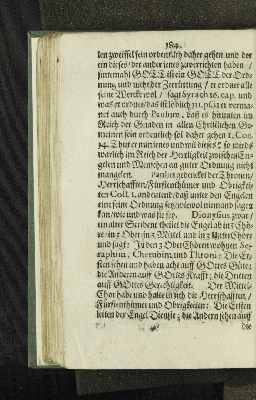 184.
len zweiffel sein ordentlich daher gehen und der
ein dieses / der ander jenes zu verrichten haben /
sintemahl GOTT ist ein GOTT der Ord-
nung und nicht der Zerrüttung / er ordnet alle
seine Werck wol / sagt Syrach 16. cap. und
was er ordnet das ist löblich 111. psal. er verma-
net auch durch Paulum, daß es hinunten im
Reich der Gnaden in allen Christlichen Ge-
meinen fein ordentlich sol daher gehen 1. Cor.
14. Thut er nun jenes und wil dieses / so wirds
warlich im Reich der Herrligkeit zwischen En-
geln und Menschen an guter Ordnung nicht
mangelen. Paulus gedencket der Thronen /
Herrschafften / Fürstenthümer und Obrigkei-
ten Coll. 1. andeutend / daß unter den Engelen
eine feine Ordnung sey / wiewol niemand sagen
kan / wie und was sie sey. Dionysius zwar /
ein alter Scribent theilet die Engel ab in Chö-
re in 3 Ober- in 3 Mittel und in 3 Unter Chöre
und sagt: In den 3 Ober Chören wohnen Se-
raphim, Cherubim und Throni: Die Er-
sten sehen und haben acht auff GOttes Güte;
die Anderen auff GOttes Krafft; die Dritten
auff GOttes Gerechtigkeit. Der Mittel-
Chor habe und halte in sich die Herrschafften /
Fürstenthümer und Obrigkeiten: Die Ersten
leiten der Engel Dienste; die Andern sehen auff
die